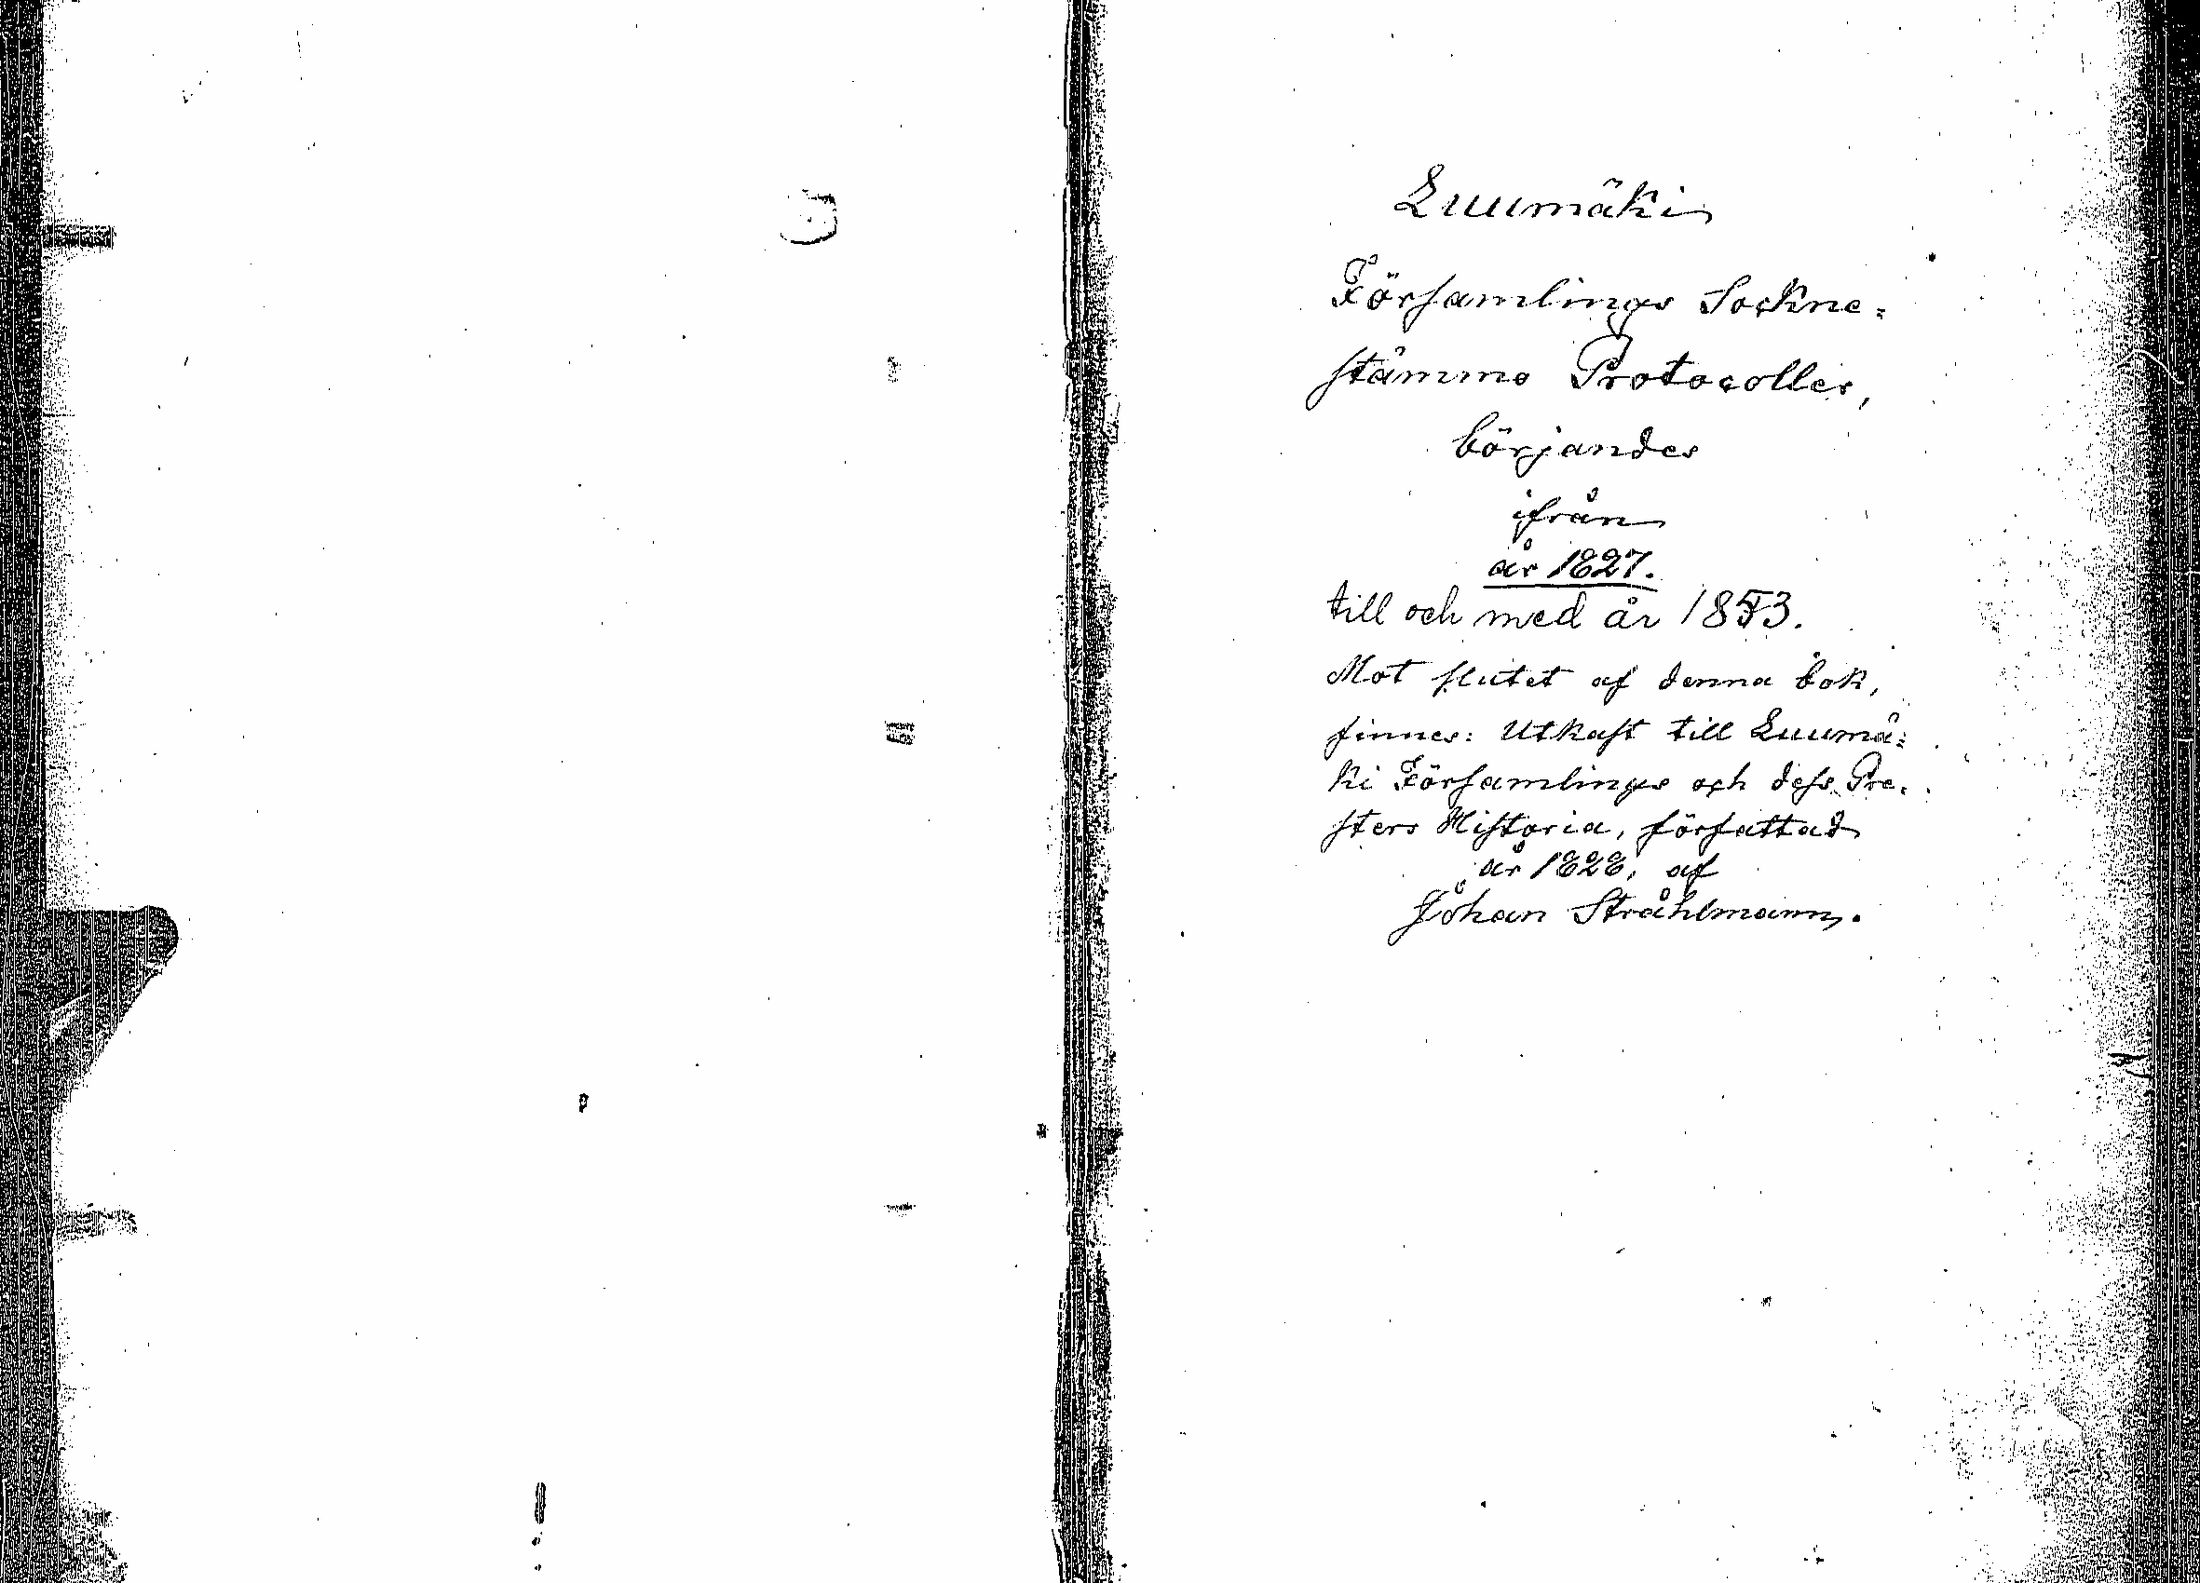 Luumäki
Församlings Sockne=
stämmo Protocoller,
börjandes
ifrån
år 1827.
till och med år 1853.
Mot slutet af denna bok,
finnes: Utkast till Luumä=
ki Församlings och dess Pre=
sters Historia, författad
år 1828, af
Johan Stråhlmann.